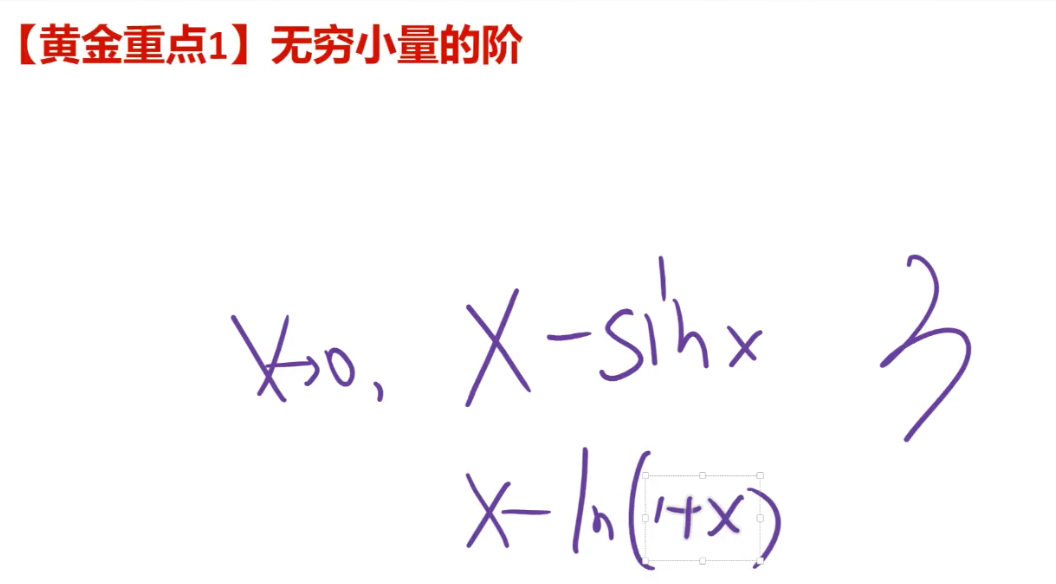 【黄金重点1】无穷小量的阶
x→0, x-sinx 3
x-ln(1+x)